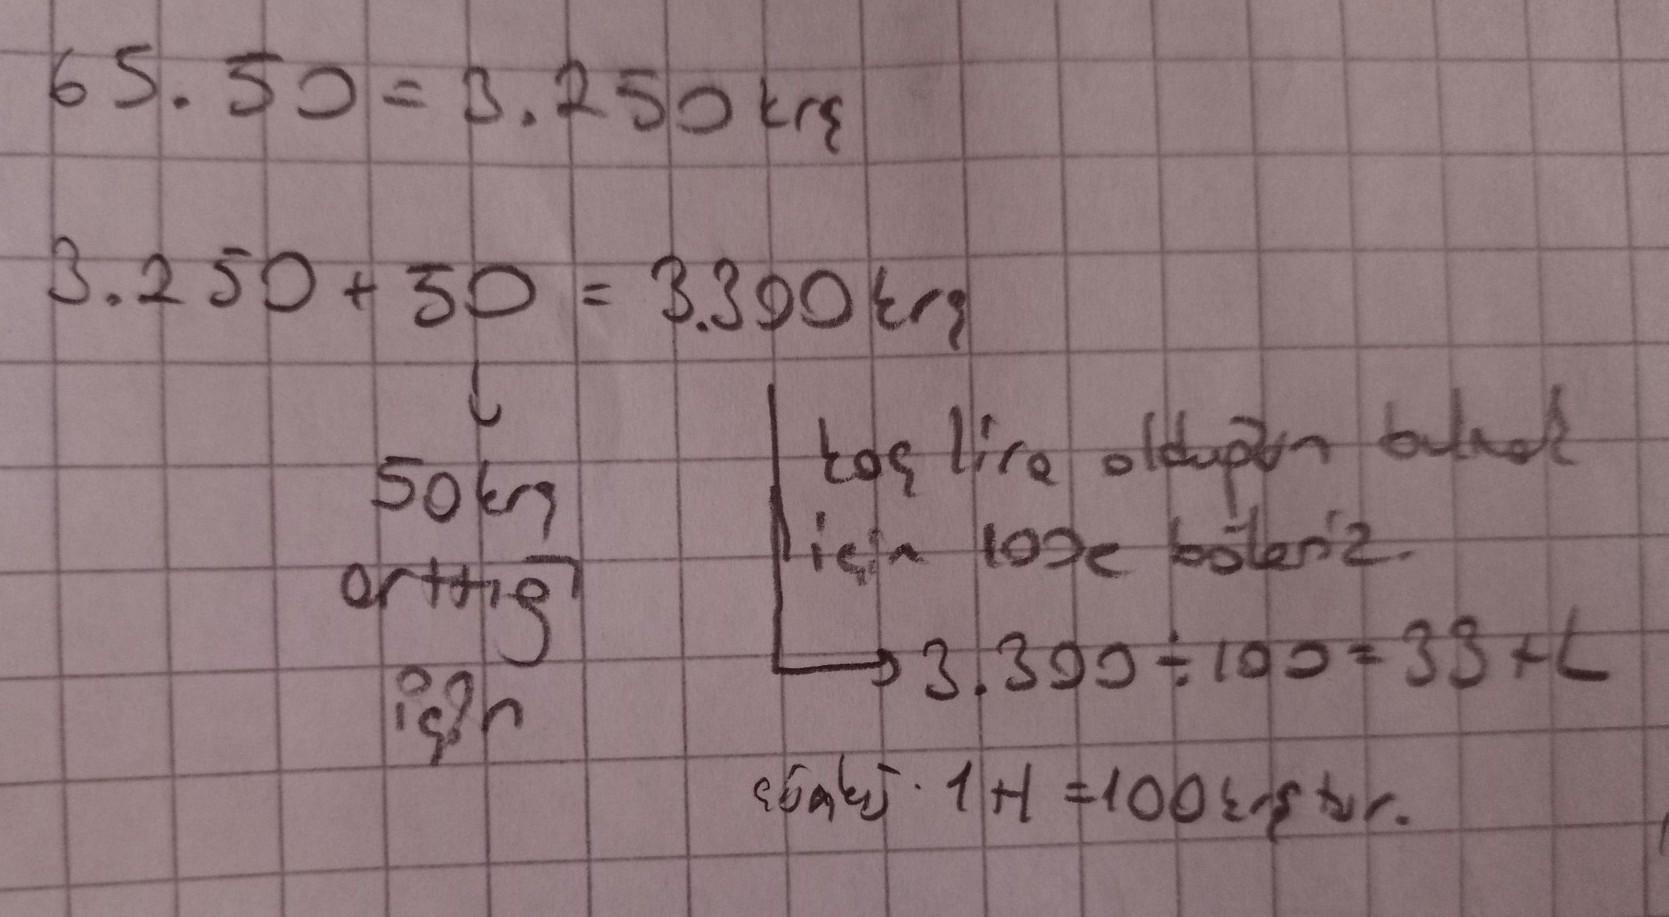 65.50=3.250krş
3.250+50=3.300krş
50krş
arttığı
için
kaç lira olduğun bulmak
için 100e böleriz.
3.300÷100=33 tL
çünkü 1 tl =100krştur.